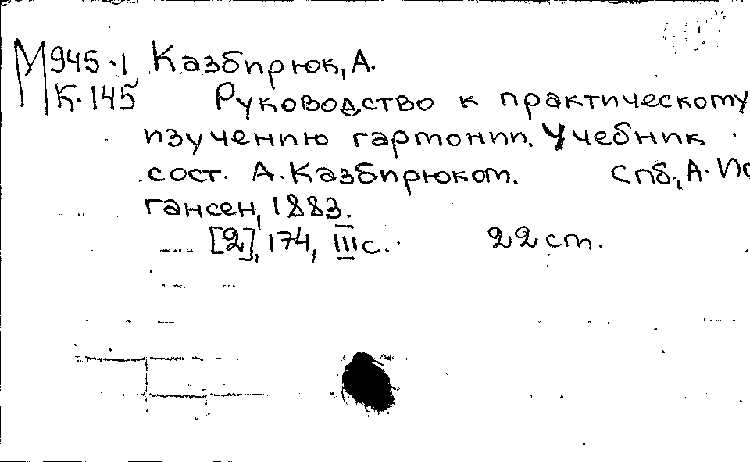 М 945-1 Казбирюк, А.
К-145 Руководство к практическому
изучению гармонии. Учебник
сост. А. Казбирюком. Спб., А. Ио
гансен, 1883.
[2], 174, III с. 22 cm.